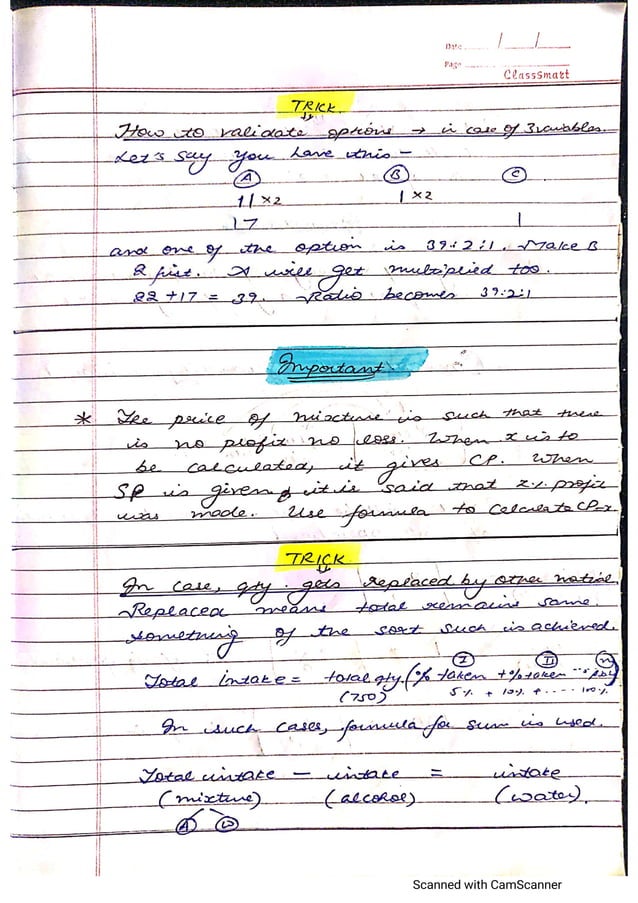 Date / /
Page
ClassSmart
TRICK
How to validate options → in case of 3 variables.
Let's say you have this –
A B C
11 ×2 1 ×2
17 1
and one of the option is 39:2:1. Make B
2 first. A will get multiplied too.
22 + 17 = 39. Ratio becomes 39:2:1
Important
* The price of mixture is such that there
is no profit no loss. When x is to
be calculated, it gives CP. When
SP is given & it is said that x% profit
was made. Use formula to calculate CP=x
TRICK
In case, qty. gets replaced by other
Replaced means total remains same.
something of the sort such is achieved.
I II n
Total intake = total qty. (% taken + % taken ...
(750) 5% + 10% + ..... 100%
In such cases, formula for sum is used.
Total intake – intake = intake
(mixture) (alcohol) (water).
A W
Scanned with CamScanner